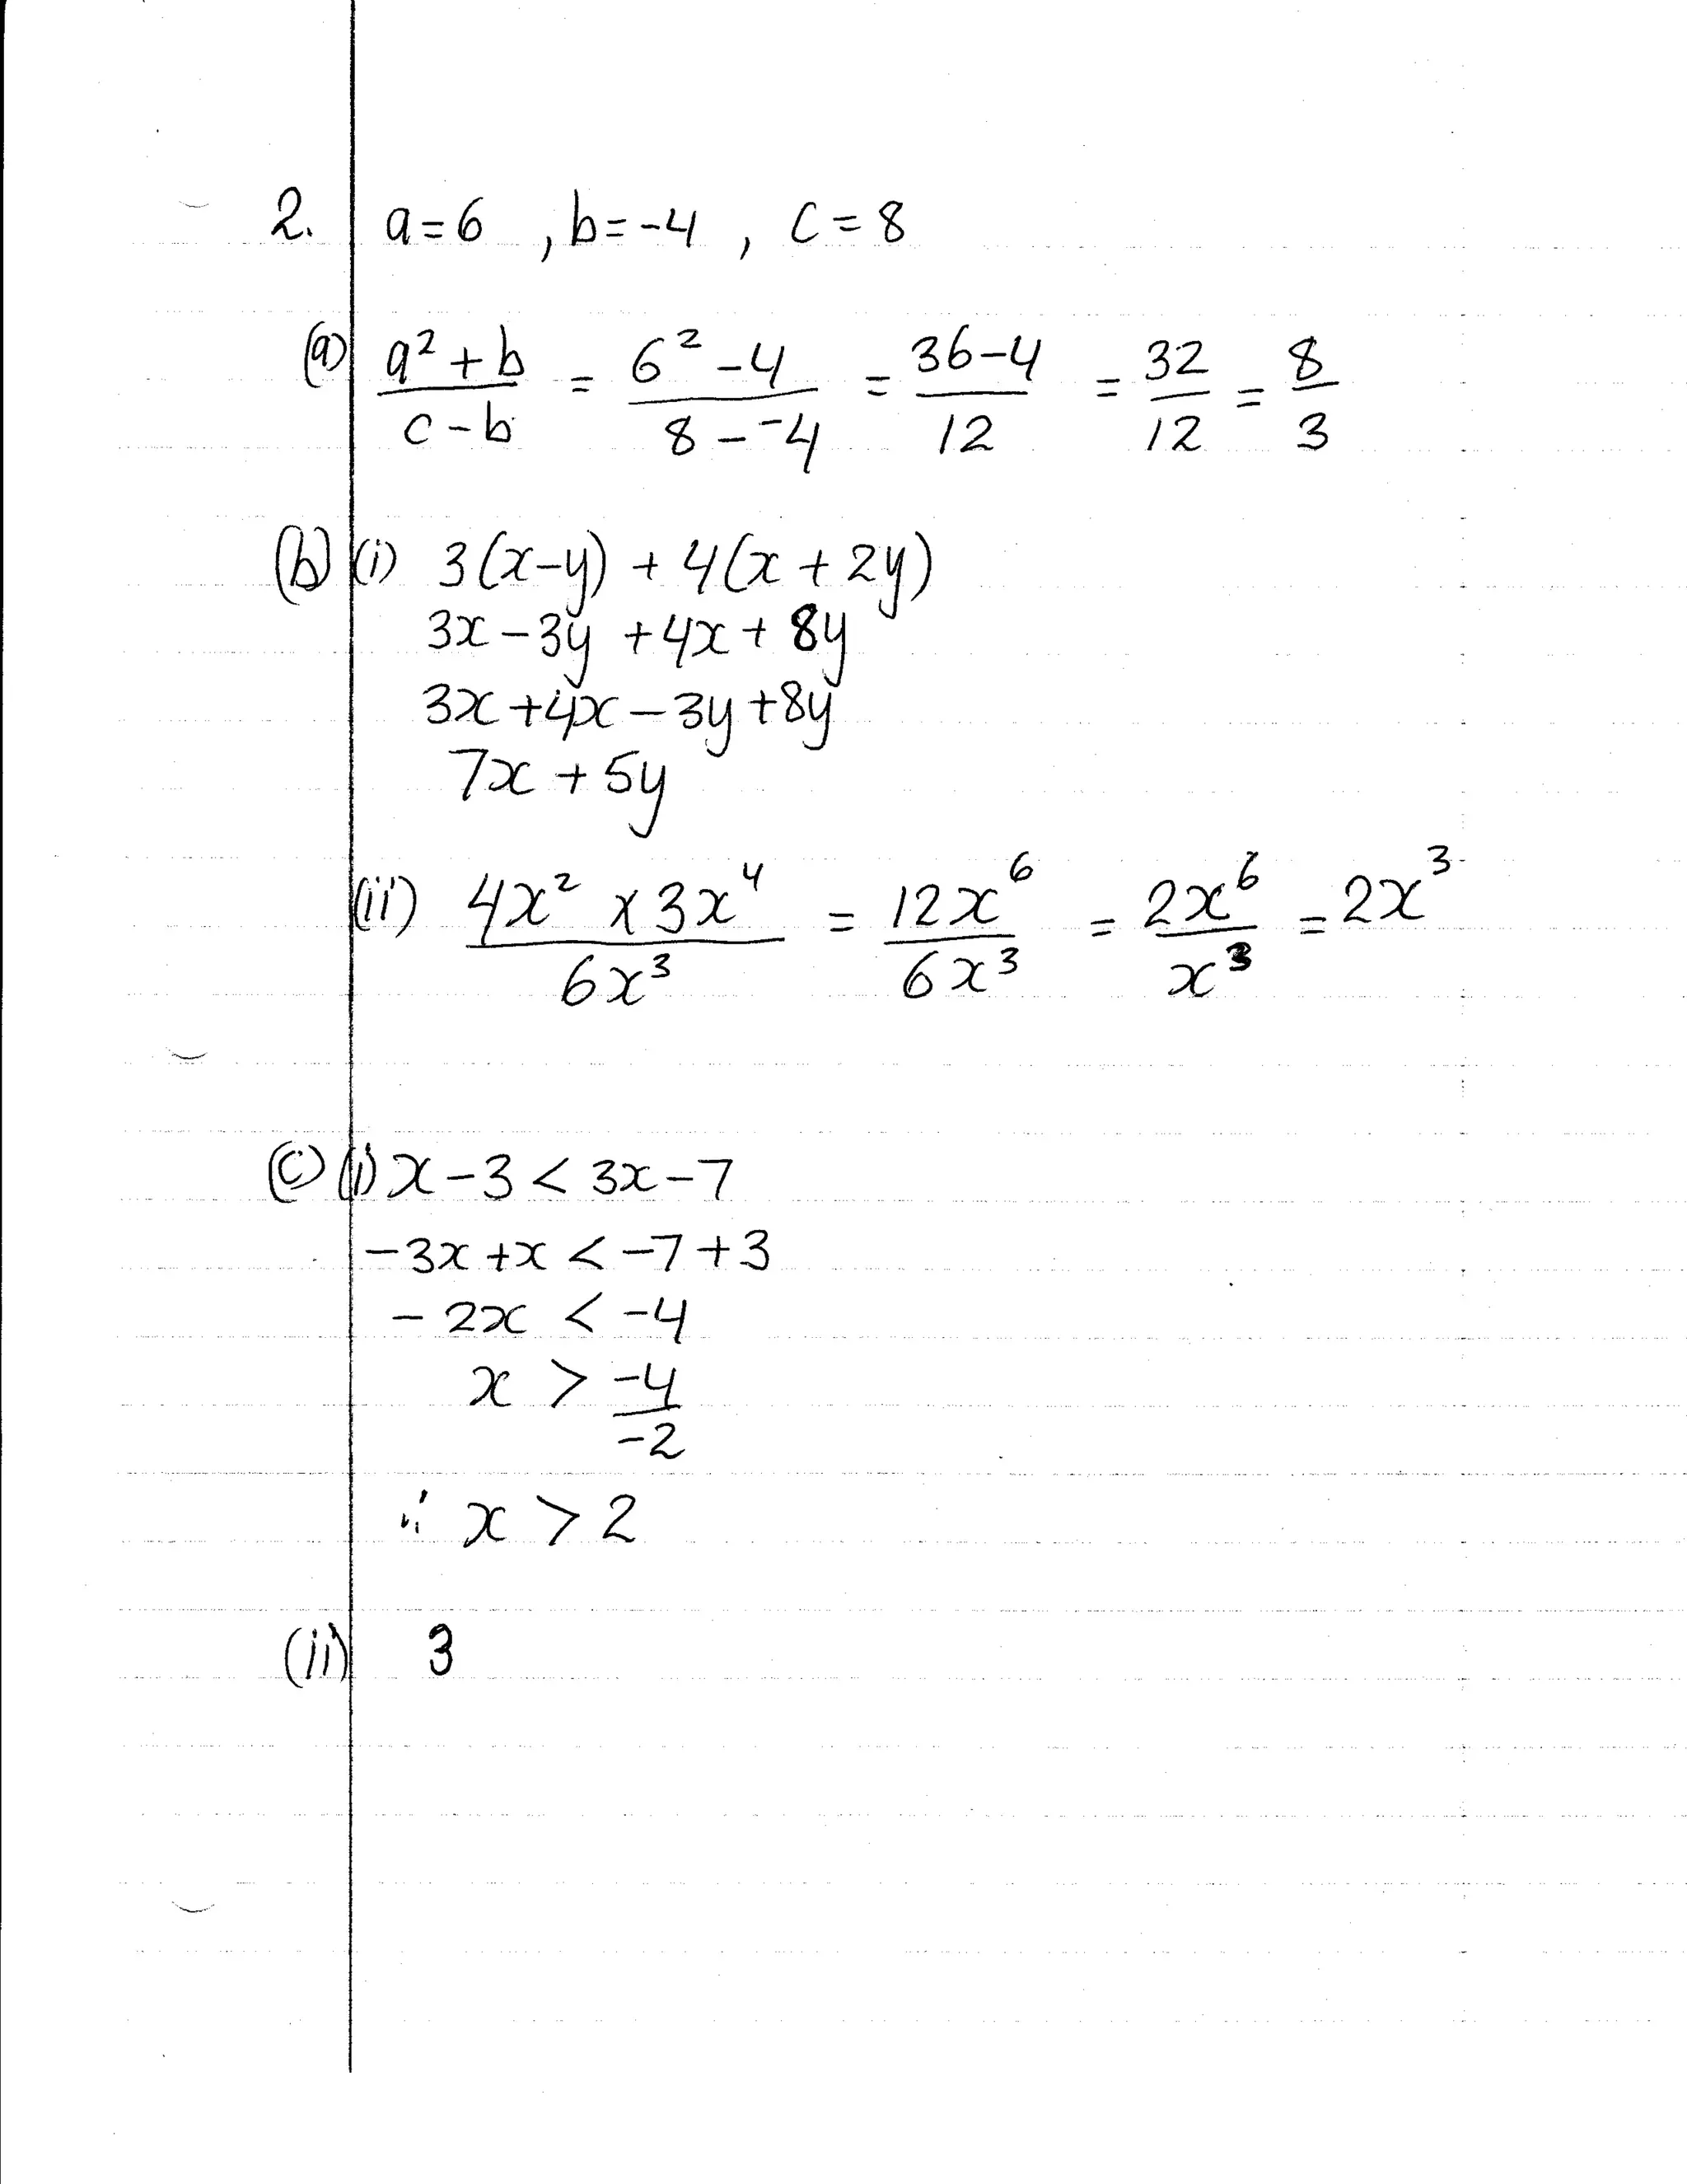 2. a=6 , b=-4 , c=8
(a) a²+b / c-b = 6²-4 / 8--4 = 36-4 / 12 = 32/12 = 8/3
(b) (i) 3(x-y) + 4(x+2y)
3x-3y+4x+8y
3x+4x-3y+8y
7x+5y
(ii) 4x² x 3x⁴ / 6x³ = 12x⁶ / 6x³ = 2x⁶ / x³ = 2x³
(c) (i) x-3 < 3x-7
-3x+x < -7+3
-2x < -4
x > -4/-2
∴ x > 2
(ii) 3